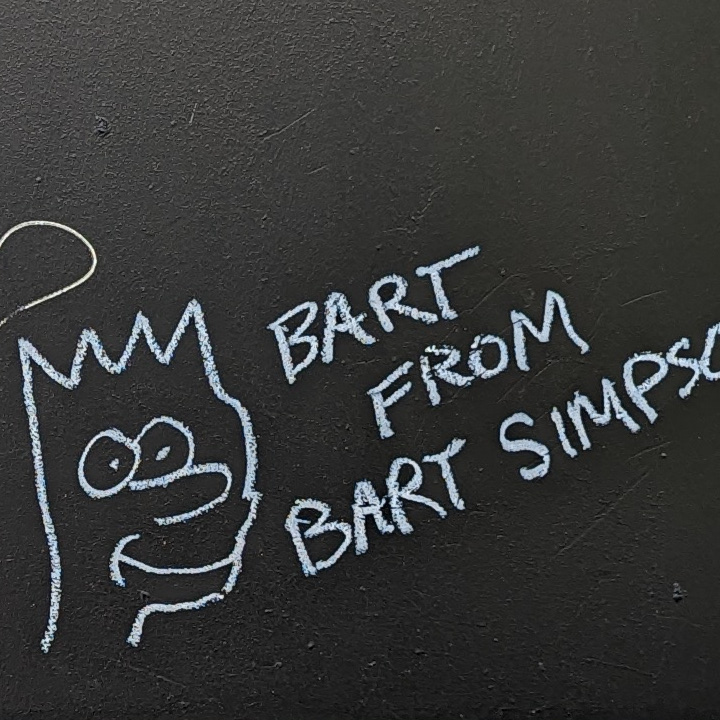 BART
FROM
BART SIMPSO